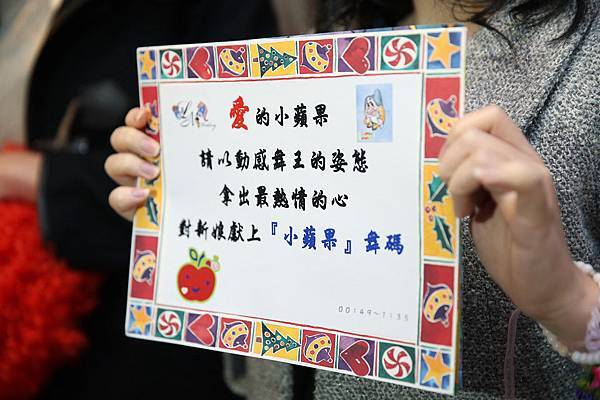 愛的小蘋果
請以動感舞王的姿態
拿出最熱情的心
對新娘獻上『小蘋果』舞碼